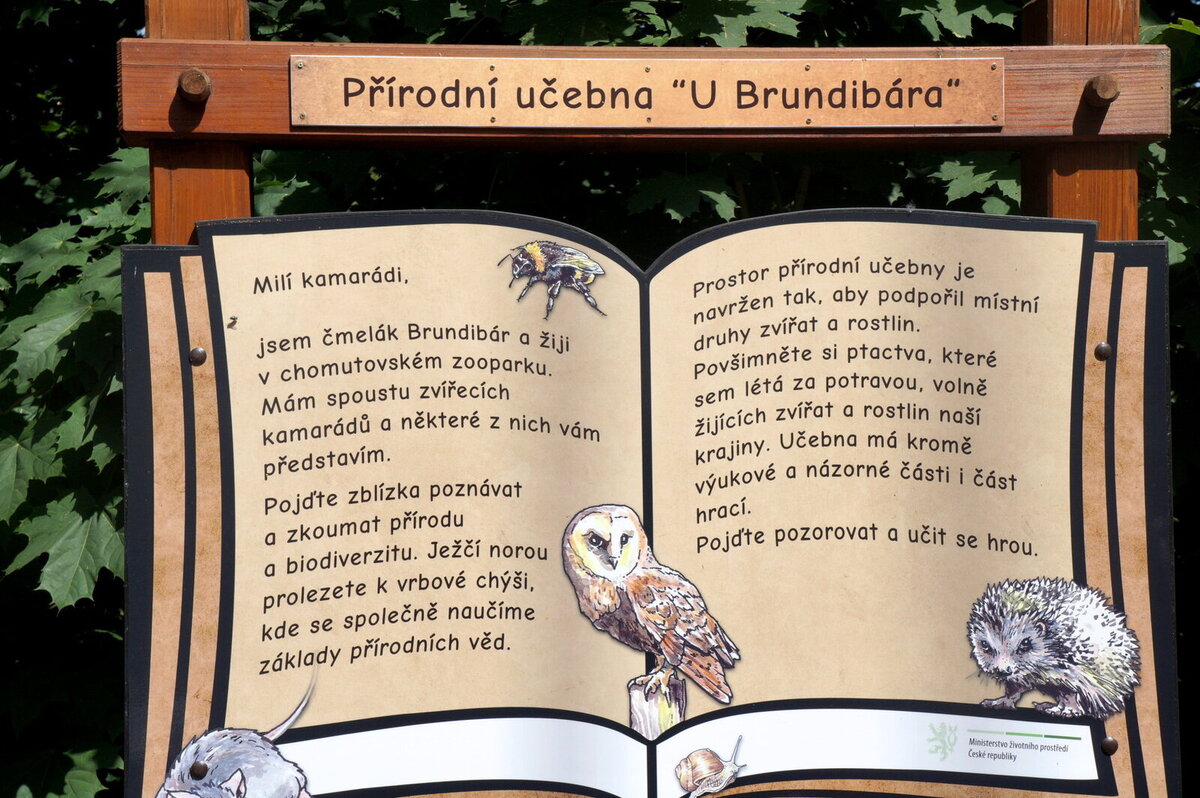 Přírodní učebna "U Brundibára"
Milí kamarádi,
jsem čmelák Brundibár a žiji
v chomutovském zooparku.
Mám spoustu zvířecích
kamarádů a některé z nich vám
představím.
Pojďte zblízka poznávat
a zkoumat přírodu
a biodiverzitu. Ježčí norou
prolezete k vrbové chýši,
kde se společně naučíme
základy přírodních věd.
Prostor přírodní učebny je
navržen tak, aby podpořil místní
druhy zvířat a rostlin.
Povšimněte si ptactva, které
sem létá za potravou, volně
žijících zvířat a rostlin naší
krajiny. Učebna má kromě
výukové a názorné části i část
hrací.
Pojďte pozorovat a učit se hrou.
Ministerstvo životního prostředí
České republiky